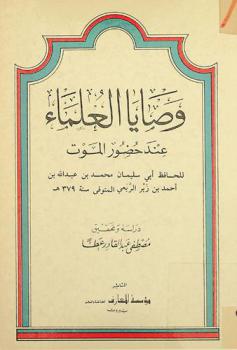 وَصَايَا العُلمَاء
عِندَ حُضُور المَوت
للحافظ أبي سليمان محمد بن عبدالله بن
أحمد بن زبر الربعي المتوفى سنة ٣٧٩ هـ
دراسة وتحقيق
مصطفى عبدالقادر عطا
الناشر
مؤسسة المعارف